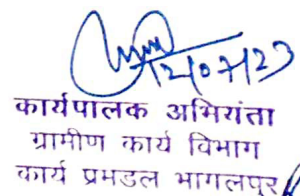 12/07/23
कार्यपालक अभियंता
ग्रामीण कार्य विभाग
कार्य प्रमडल भागलपुर